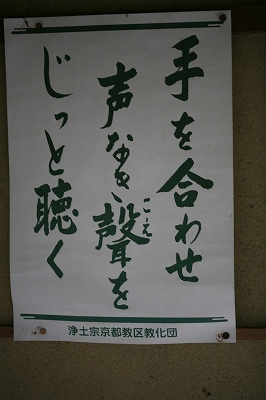 手を合わせ
声なき聲を
こえ
じっと聴く
浄土宗京都教区教化団